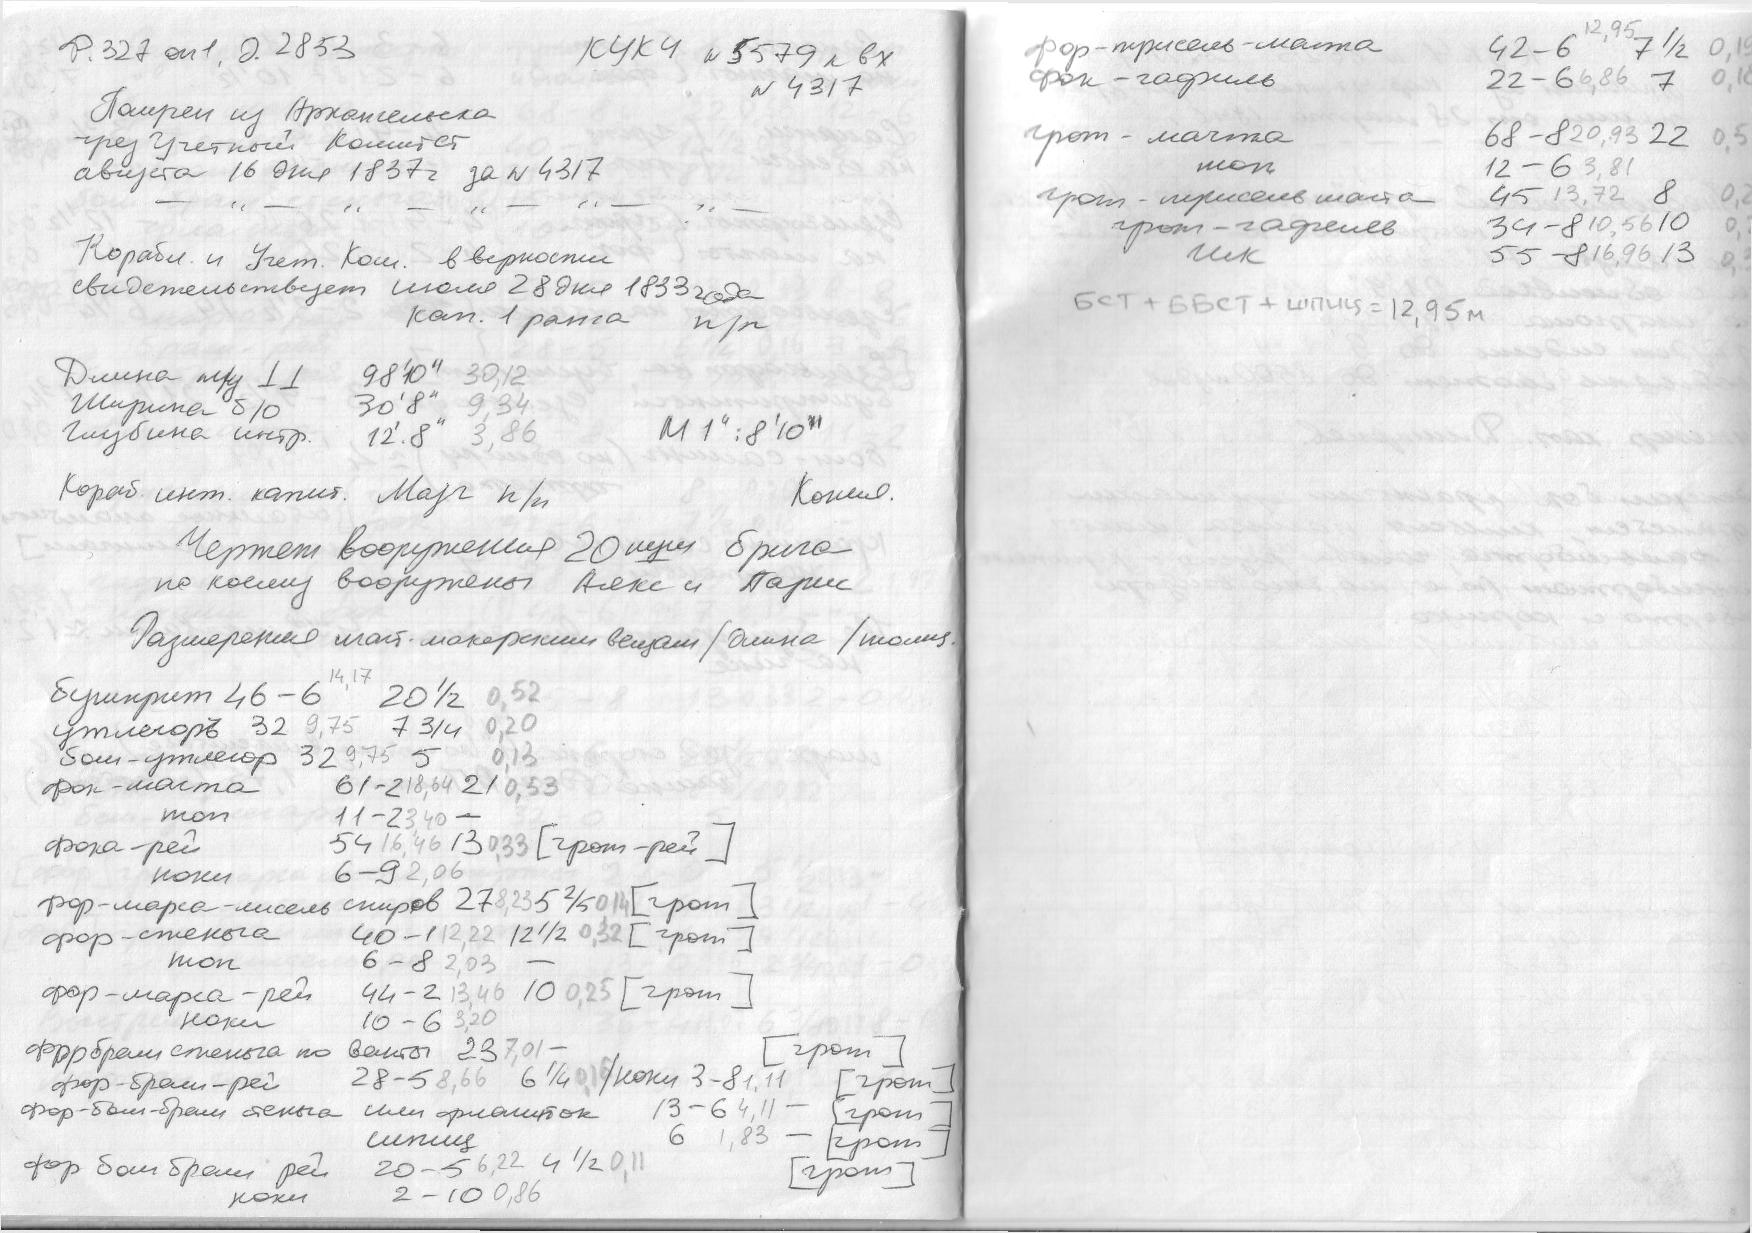 Р.327 оп1, д. 2853
КЧКЧ №5579 к вх
№ 4317
Получен из Архангельска
чрез Учетный Комитет
августа 16 дня 1837г за №4317
— " — " — " — " — " —
Корабл. и Учет. Ком. в верности
свидетельствует июля 28 дня 1833 года
Кап. 1 ранга п/п
Длина м/у ⊥⊥ 98'10" 30,12
Ширина б/о 30'8" 9,34
Глубина интр. 12'.8" 3,86 М 1":8'10"
Кораб. инж. капит. п/п Копия.
Чертеж Вооружения 20 пуш брига
по коему вооружены Аякс и Парис
Размерения мачт-макерским вещам /длина /толщ.
бушприт 46-6 14,17 20 1/2 0,52
утлегорь 32 9,75 7 3/4 0,20
бом-утлегор 32 9,75 5 0,13
фок-мачта 61-2 18,64 21 0,53
топ 11-2 3,40 —
фока-рей 54 16,46 13 0,33 [грот-рей]
ноки 6-9 2,06
фор-марса-лисель спиров 27 8,23 5 2/5 0,14 [грот]
фор-стеньга 40-1 12,22 12 1/2 0,32 [грот]
топ 6-8 2,03 —
фор-марса-рей 44-2 13,46 10 0,25 [грот]
ноки 10-6 3,20
фор брам стеньга по ванты 23 7,01 — [грот]
фор-брам-рей 28-5 8,66 6 1/4 0,16 /ноки 3-8 1,11 [грот]
фор-бом-брам стеньга или флагшток 13-6 4,11 — [грот]
шпиц 6 1,83 — [грот]
фор бом брам рей 20-5 6,22 4 1/2 0,11 [грот]
ноки 2-10 0,86
фор-трисель-мачта 42-6 12,95 7 1/2 0,19
фок-гафель 22-6 6,86 7 0,18
грот-мачта 68-8 20,93 22 0,5
топ 12-6 3,81
грот-трисель мачта 45 13,72 8 0,2
грот-гафель 34-8 10,56 10 0,
гик 55-8 16,96 13 0,3
БСТ + ББСТ + шпиц = 12,95м